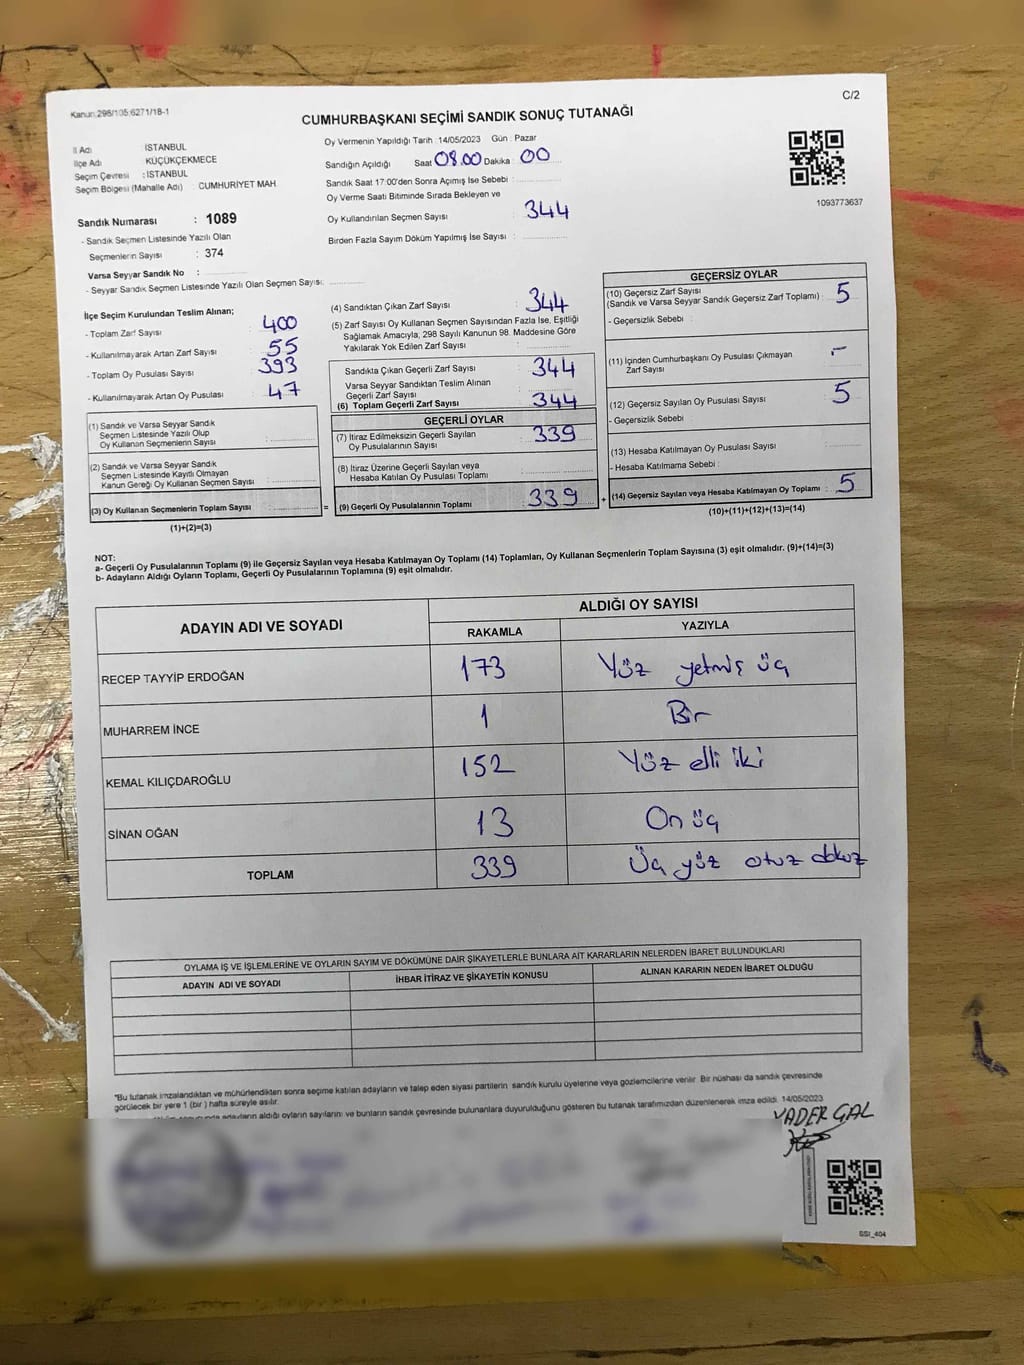 Kanun:298/105;6271/18-1
C/2
CUMHURBAŞKANI SEÇİMİ SANDIK SONUÇ TUTANAĞI
İl Adı İSTANBUL
İlçe Adı KÜÇÜKÇEKMECE
Seçim Çevresi : İSTANBUL
Seçim Bölgesi (Mahalle Adı) : CUMHURİYET MAH
Sandık Numarası : 1089
- Sandık Seçmen Listesinde Yazılı Olan
Seçmenlerin Sayısı : 374
Varsa Seyyar Sandık No :
- Seyyar Sandık Seçmen Listesinde Yazılı Olan Seçmen Sayısı:
Oy Vermenin Yapıldığı Tarih : 14/05/2023 Gün : Pazar
Sandığın Açıldığı Saat 08.00 Dakika : 00
Sandık Saat 17:00'den Sonra Açımış İse Sebebi :
Oy Verme Saati Bitiminde Sırada Bekleyen ve
Oy Kullandırılan Seçmen Sayısı : 344
Birden Fazla Sayım Döküm Yapılmış İse Sayısı :
1093773637
İlçe Seçim Kurulundan Teslim Alınan;
- Toplam Zarf Sayısı : 400
- Kullanılmayarak Artan Zarf Sayısı : 55
- Toplam Oy Pusulası Sayısı : 393
- Kullanılmayarak Artan Oy Pusulası : 47
(1) Sandık ve Varsa Seyyar Sandık
Seçmen Listesinde Yazılı Olup
Oy Kullanan Seçmenlerin Sayısı :
(2) Sandık ve Varsa Seyyar Sandık
Seçmen Listesinde Kayıtlı Olmayan
Kanun Gereği Oy Kullanan Seçmen Sayısı :
(3) Oy Kullanan Seçmenlerin Toplam Sayısı :
(1)+(2)=(3)
=
(4) Sandıktan Çıkan Zarf Sayısı : 344
(5) Zarf Sayısı Oy Kullanan Seçmen Sayısından Fazla İse, Eşitliği
Sağlamak Amacıyla, 298 Sayılı Kanunun 98. Maddesine Göre
Yakılarak Yok Edilen Zarf Sayısı :
Sandıkta Çıkan Geçerli Zarf Sayısı : 344
Varsa Seyyar Sandıktan Teslim Alınan
Geçerli Zarf Sayısı :
(6) Toplam Geçerli Zarf Sayısı : 344
GEÇERLİ OYLAR
(7) İtiraz Edilmeksizin Geçerli Sayılan
Oy Pusulasının Sayısı : 339
(8) İtiraz Üzerine Geçerli Sayılan veya
Hesaba Katılan Oy Pusulası Toplamı :
(9) Geçerli Oy Pusulalarının Toplamı : 339
+
GEÇERSİZ OYLAR
(10) Geçersiz Zarf Sayısı
(Sandık ve Varsa Seyyar Sandık Geçersiz Zarf Toplamı) : 5
- Geçersizlik Sebebi :
(11) İçinden Cumhurbaşkanı Oy Pusulası Çıkmayan
Zarf Sayısı : -
(12) Geçersiz Sayılan Oy Pusulası Sayısı : 5
- Geçersizlik Sebebi :
(13) Hesaba Katılmayan Oy Pusulası Sayısı :
- Hesaba Katılmama Sebebi :
(14) Geçersiz Sayılan veya Hesaba Katılmayan Oy Toplamı : 5
(10)+(11)+(12)+(13)=(14)
NOT:
a- Geçerli Oy Pusulalarının Toplamı (9) ile Geçersiz Sayılan veya Hesaba Katılmayan Oy Toplamı (14) Toplamları, Oy Kullanan Seçmenlerin Toplam Sayısına (3) eşit olmalıdır. (9)+(14)=(3)
b- Adayların Aldığı Oyların Toplamı, Geçerli Oy Pusulalarının Toplamına (9) eşit olmalıdır.
ADAYIN ADI VE SOYADI
ALDIĞI OY SAYISI
RAKAMLA YAZIYLA
RECEP TAYYİP ERDOĞAN 173 Yüz yetmiş üç
MUHARREM İNCE 1 Bir
KEMAL KILIÇDAROĞLU 152 Yüz elli iki
SİNAN OĞAN 13 On üç
TOPLAM 339 Üç yüz otuz dokuz
OYLAMA İŞ VE İŞLEMLERİNE VE OYLARIN SAYIM VE DÖKÜMÜNE DAİR ŞİKAYETLERLE BUNLARA AİT KARARLARIN NELERDEN İBARET BULUNDUKLARI
ADAYIN ADI VE SOYADI İHBAR İTİRAZ VE ŞİKAYETİN KONUSU ALINAN KARARIN NEDEN İBARET OLDUĞU
*Bu tutanak imzalandıktan ve mühürlendikten sonra seçime katılan adayların ve talep eden siyasi partilerin sandık kurulu üyelerine veya gözlemcilerine verilir. Bir nüshası da sandık çevresinde
görülecek bir yere 1 (bir ) hafta süreyle asılır.
adayların aldığı oyların sayılarını ve bunların sandık çevresinde bulunanlara duyurulduğunu gösteren bu tutanak tarafımızdan düzenlenerek imza edildi. 14/05/2023
GAL
SSI_404